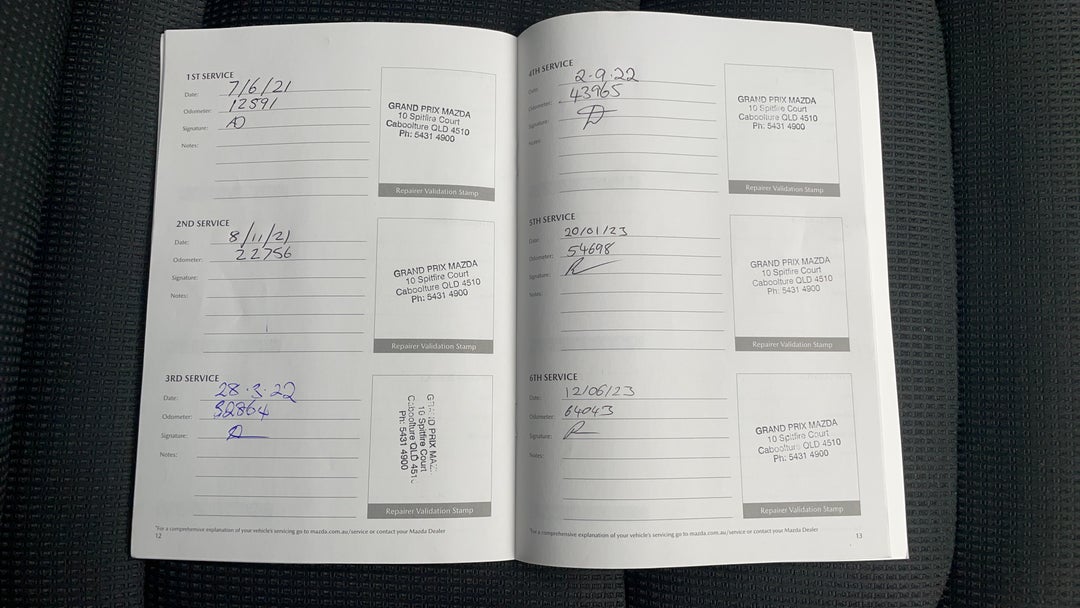 1ST SERVICE
Date: 7/6/21
Odometer: 12591
Signature: AD
Notes:
GRAND PRIX MAZDA
10 Spitfire Court
Caboolture QLD 4510
Ph: 5431 4900
Repairer Validation Stamp
2ND SERVICE
Date: 8/11/21
Odometer: 22756
Signature:
Notes:
GRAND PRIX MAZDA
10 Spitfire Court
Caboolture QLD 4510
Ph: 5431 4900
Repairer Validation Stamp
3RD SERVICE
Date: 28.3.22
Odometer: 32864
Signature:
Notes:
GRAND PRIX MAZ
10 Spitfire Court
Caboolture QLD 451
Ph: 5431 4900
Repairer Validation Stamp
*For a comprehensive explanation of your vehicle's servicing go to mazda.com.au/service or contact your Mazda Dealer
12
4TH SERVICE
Date: 2-9.22
Odometer: 43965
Signature:
Notes:
GRAND PRIX MAZDA
10 Spitfire Court
Caboolture QLD 4510
Ph: 5431 4900
Repairer Validation Stamp
5TH SERVICE
Date: 20/01/23
Odometer: 54698
Signature:
Notes:
GRAND PRIX MAZDA
10 Spitfire Court
Caboolture QLD 4510
Ph: 5431 4900
Repairer Validation Stamp
6TH SERVICE
Date: 12/06/23
Odometer: 64043
Signature:
Notes:
GRAND PRIX MAZDA
10 Spitfire Court
Caboolture QLD 4510
Ph: 5431 4900
Repairer Validation Stamp
*For a comprehensive explanation of your vehicle's servicing go to mazda.com.au/service or contact your Mazda Dealer
13